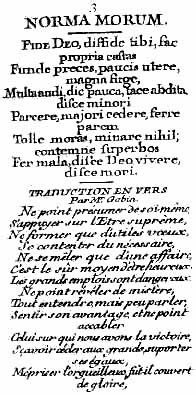 3
NORMA MORUM.
FIDE DEO, diffide tibi, fac
propria castas
Funde preces, paucis utere,
magna fuge,
Multa audi, dic pauca, tace abdita,
disce minori
Parcere, majori cedere, ferre
parem
Tolle moras, minare nihil;
contemne superbos
Fer mala, disce Deo vivere,
disce mori.
TRADUCTION EN VERS
Par Mr. Gobin.
Ne point présumer de soi-même,
S'appuyer sur l'Etre suprême,
Ne former que d'utiles vœux,
Se contenter du nécessaire,
Ne se mêler que d'une affaire,
C'est le sûr moyen d'être heureux.
Les grands emplois sont dangereux
Ne point révéler de mistère,
Tout entendre, mais peu parler,
Sentir son avantage, et ne point
accabler
Celui sur qui nous avons la victoire,
Sçavoir céder aux grands, suporter
ses égaux,
Mépriser l'orgueilleux, fût-il couvert
de gloire,